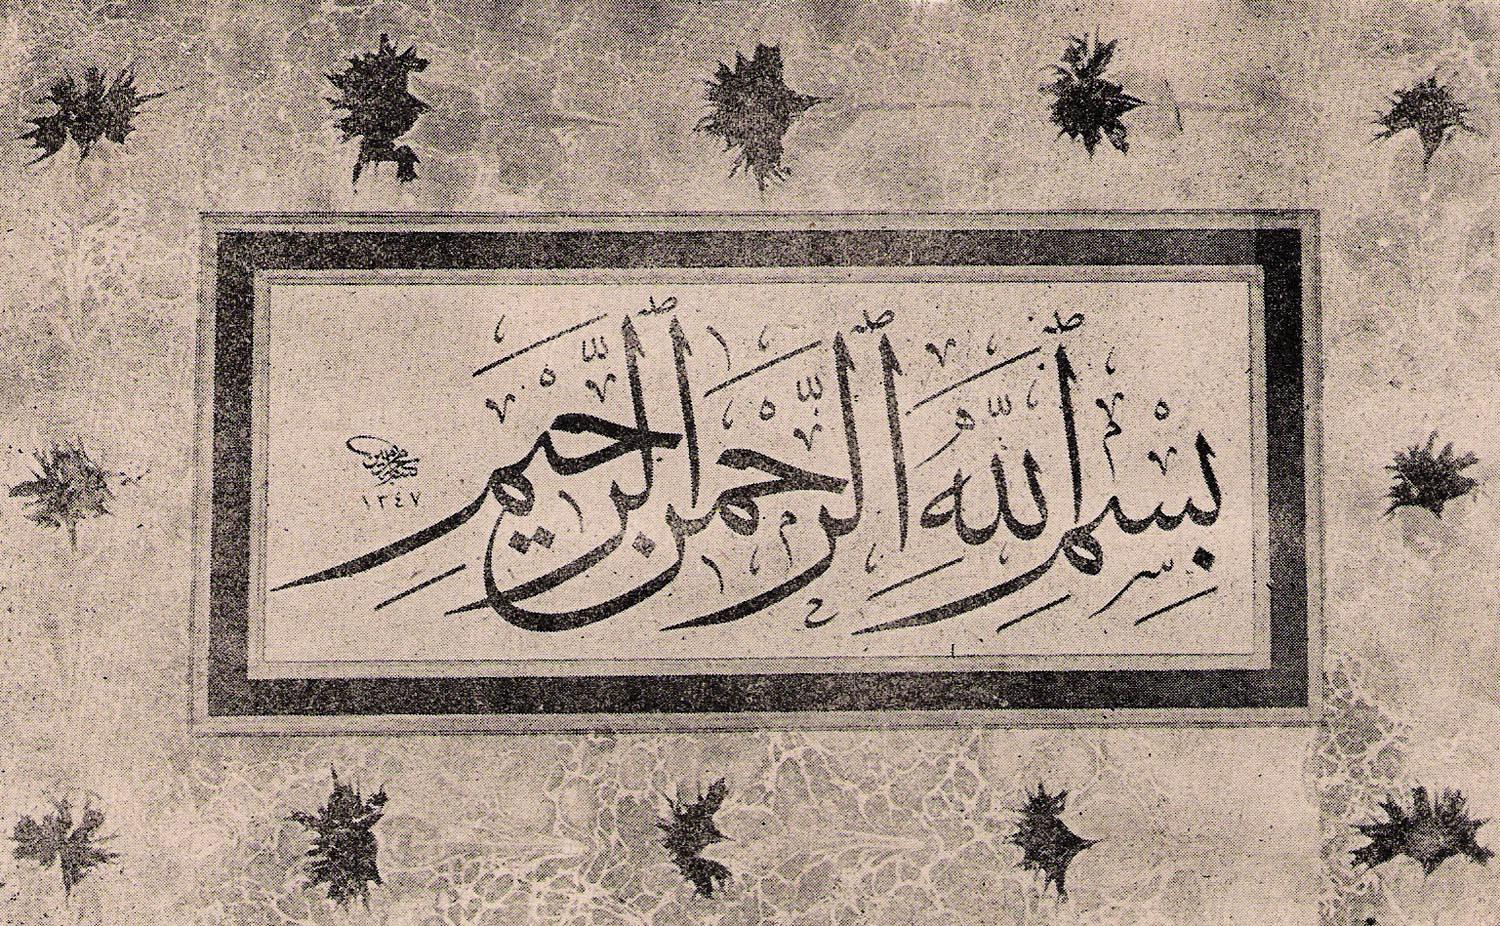 بِسْمِ ٱللَّهِ ٱلرَّحْمٰنِ ٱلرَّحِيمِ
١٣٤٧